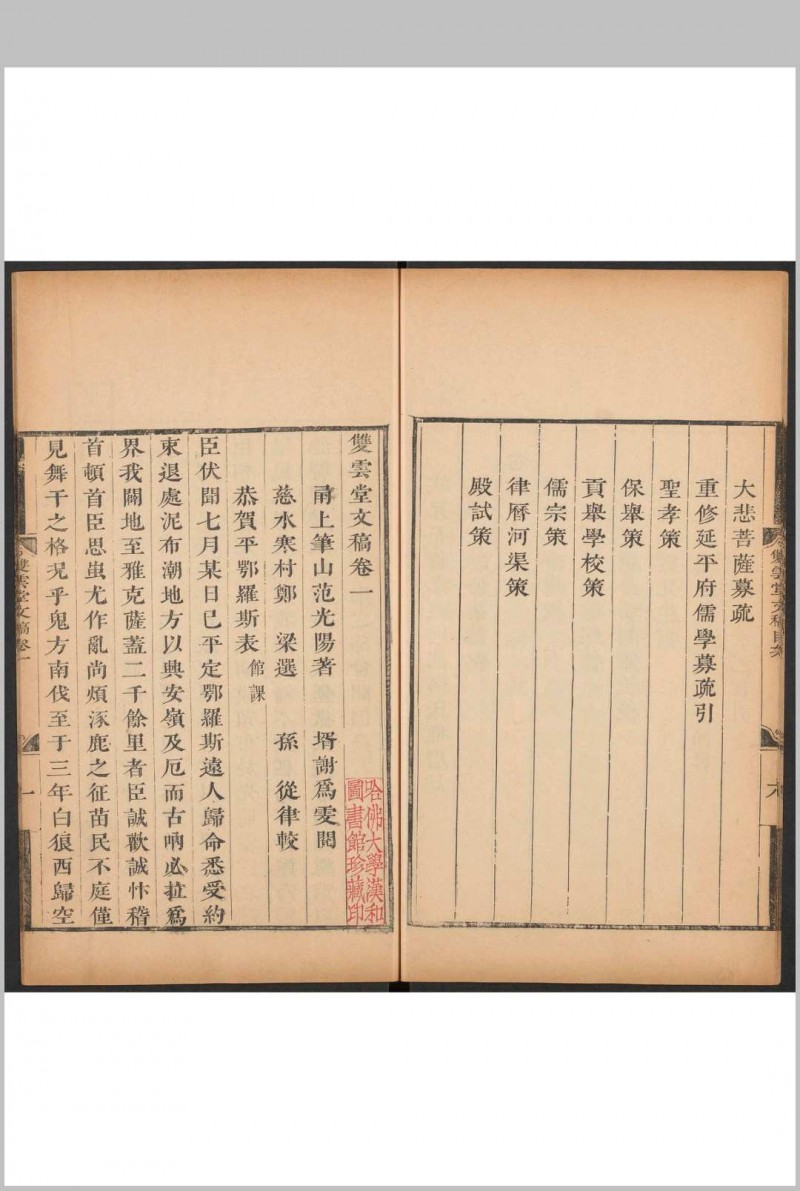 大悲菩薩募疏
重修延平府儒學募疏引
聖孝策
保舉策
貢舉學校策
儒宗策
律曆河渠策
殿試策
雙雲堂文稿卷一
甬上筆山范光陽著　壻謝爲雯閱
慈水寒村鄭　梁選　孫　從律較
恭賀平鄂羅斯表 館課
臣伏聞七月某日已平定鄂羅斯遠人歸命悉受約
束退處泥布潮地方以興安嶺及厄而古吶必拉爲
界我闢地至雅克薩蓋二千餘里者臣誠歡誠忭稽
首頓首臣思蚩尤作亂尚煩涿鹿之征苗民不庭僅
見舞干之格况乎鬼方南伐至于三年白狼西歸空
雙雲堂文稿卷一
一
哈佛大學漢和
圖書館珍藏印